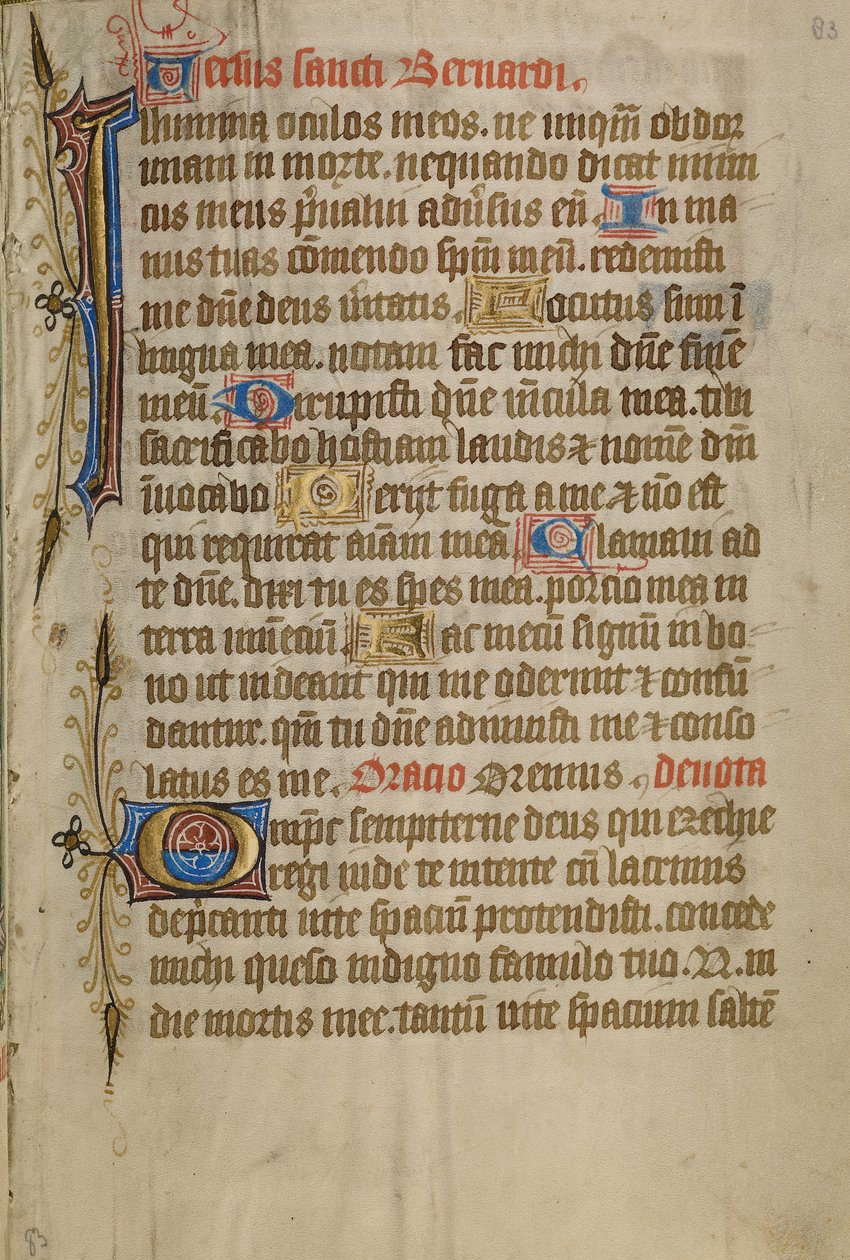 83
Versus sancti Bernardi.
Illumina oculos meos. ne unqm̄ obdor
miam in morte. nequando dicat inimi
cus meus p̄ualui adūsus eū. In ma
nus tuas cōmendo spm̄ meū. redemisti
me dn̄e deus ūitatis. Locutus sum ī
lingua mea. notam fac michi dn̄e finē
meū. Dirupisti dn̄e vīcula mea. tibi
sacrificabo hostiam laudis ⁊ nomē dn̄i
īuocabo Periit fuga a me ⁊ nō est
qui requirat aīam meā. Clamaui ad
te dn̄e. dixi tu es spes mea. porcio mea in
terra viuēciū. Fac mecū signū in bo⸗
no ut uideant qui me oderunt ⁊ confū
dantur. qm̄ tu dn̄e adiuuisti me ⁊ conso
latus es me. Oracio Oremus. deuota
Omp̄c sempiterne deus qui ezechie
regi iude te intente cū lacrimis
dep̄canti uite spaciū protendisti. concede
michi queso indigno famulo tuo. N. in
die mortis mee. tantū uite spacium saltē
83